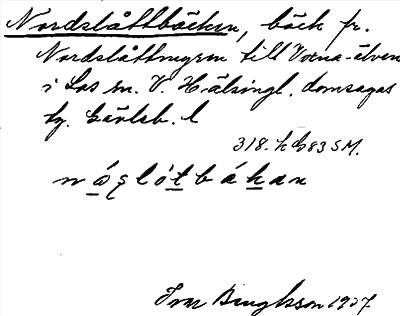 Nordslåttbäcken, bäck fr.
Nordslåttmyren till Voxna-älven
i Los sn. V. Hälsingl. domsagas
tg. Gävleb. l
318. h b 83 SM.
Ivar Bengtsson 1927